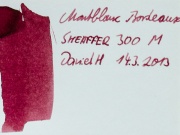 Montblanc Bordeaux
SHEAFFER 300 M
Daniel H 14.3.2013